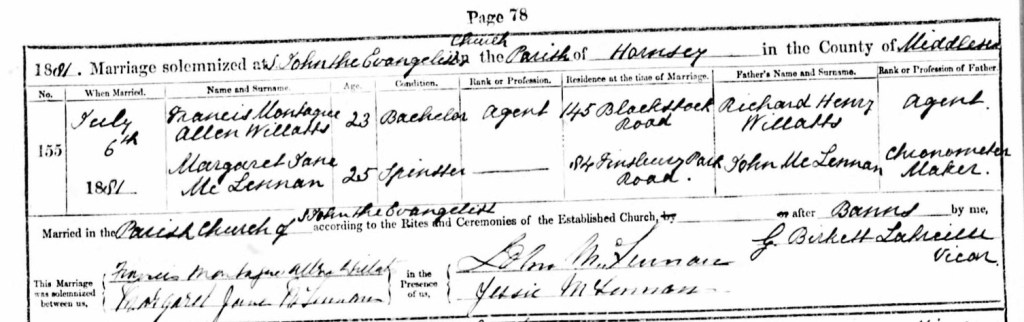 Page 78
1881. Marriage solemnized at St John the Evangelist Church in the Parish of Hornsey in the County of Middlesex
No. When Married. Name and Surname. Age. Condition. Rank or Profession. Residence at the time of Marriage. Father's Name and Surname. Rank or Profession of Father.
155 July 6th 1881 Francis Montague Allen Willatts 23 Bachelor Agent 145 Blackstock Road Richard Henry Willatts Agent.
Margaret Jane Mc Lennan 25 Spinster 84 Finsbury Park Road. John Mc Lennan Chronometer Maker.
Married in the Parish Church of St John the Evangelist according to the Rites and Ceremonies of the Established Church, by or after Banns by me,
G. Birkett Vicar.
This Marriage was solemnized between us,
Francis Montague Allen Willatts
Margaret Jane McLennan
in the Presence of us,
John McLennan
Jessie McLennan